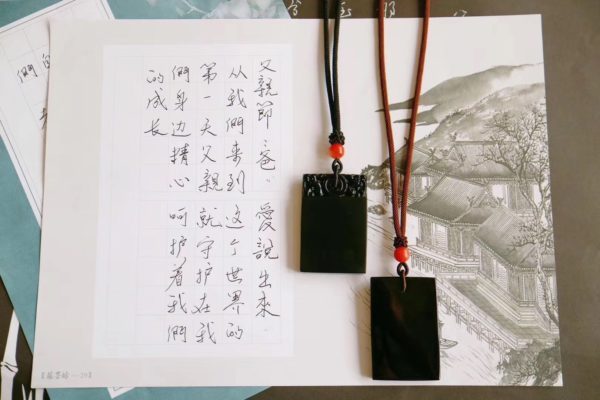 父親節、爸〃愛說出來
从我們来到这个世界的
第一天父親就守护在我
們身边精心呵护着我們
的成长
們